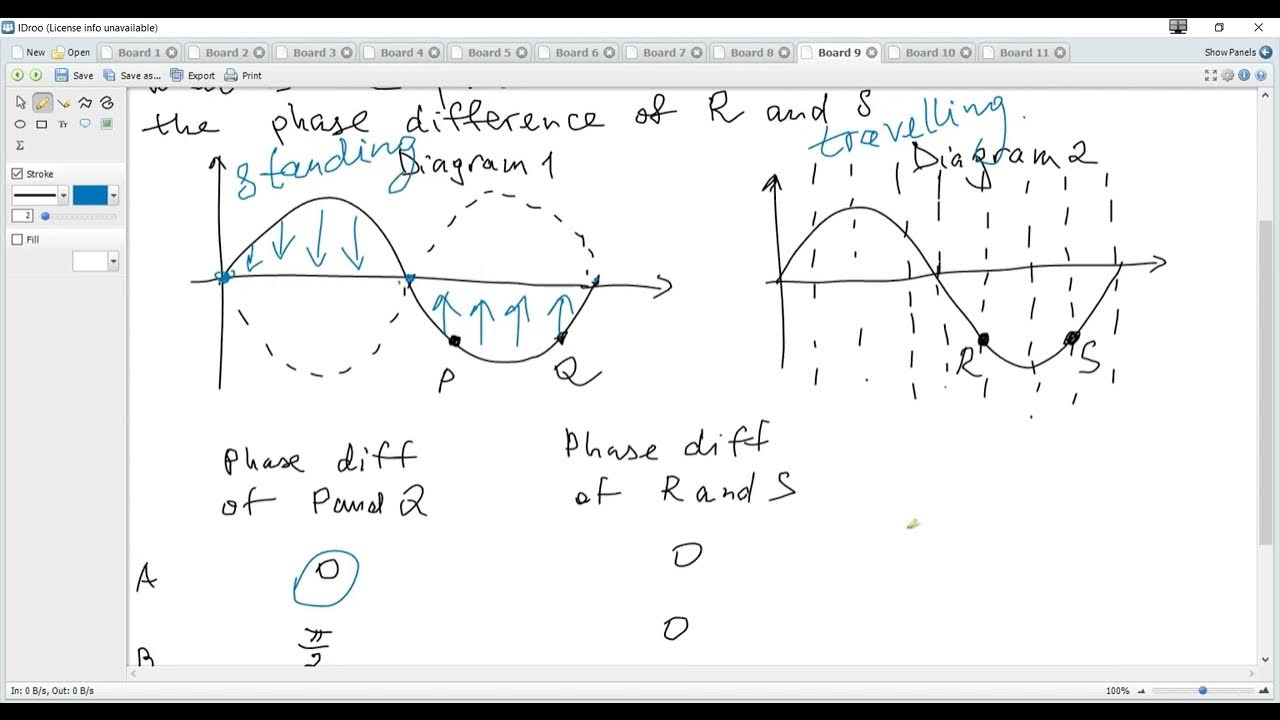 IDroo (License info unavailable)
New Open Board 1 Board 2 Board 3 Board 4 Board 5 Board 6 Board 7 Board 8 Board 9 Board 10 Board 11 Show Panels
Save Save as... Export Print
the phase difference of R and S
standing
travelling.
Diagram 1
Diagram 2
Stroke
2
Fill
P
Q
R
S
Phase diff
of P and Q
Phase diff
of R and S
A 0 0
B π/2 0
In: 0 B/s, Out: 0 B/s
100%